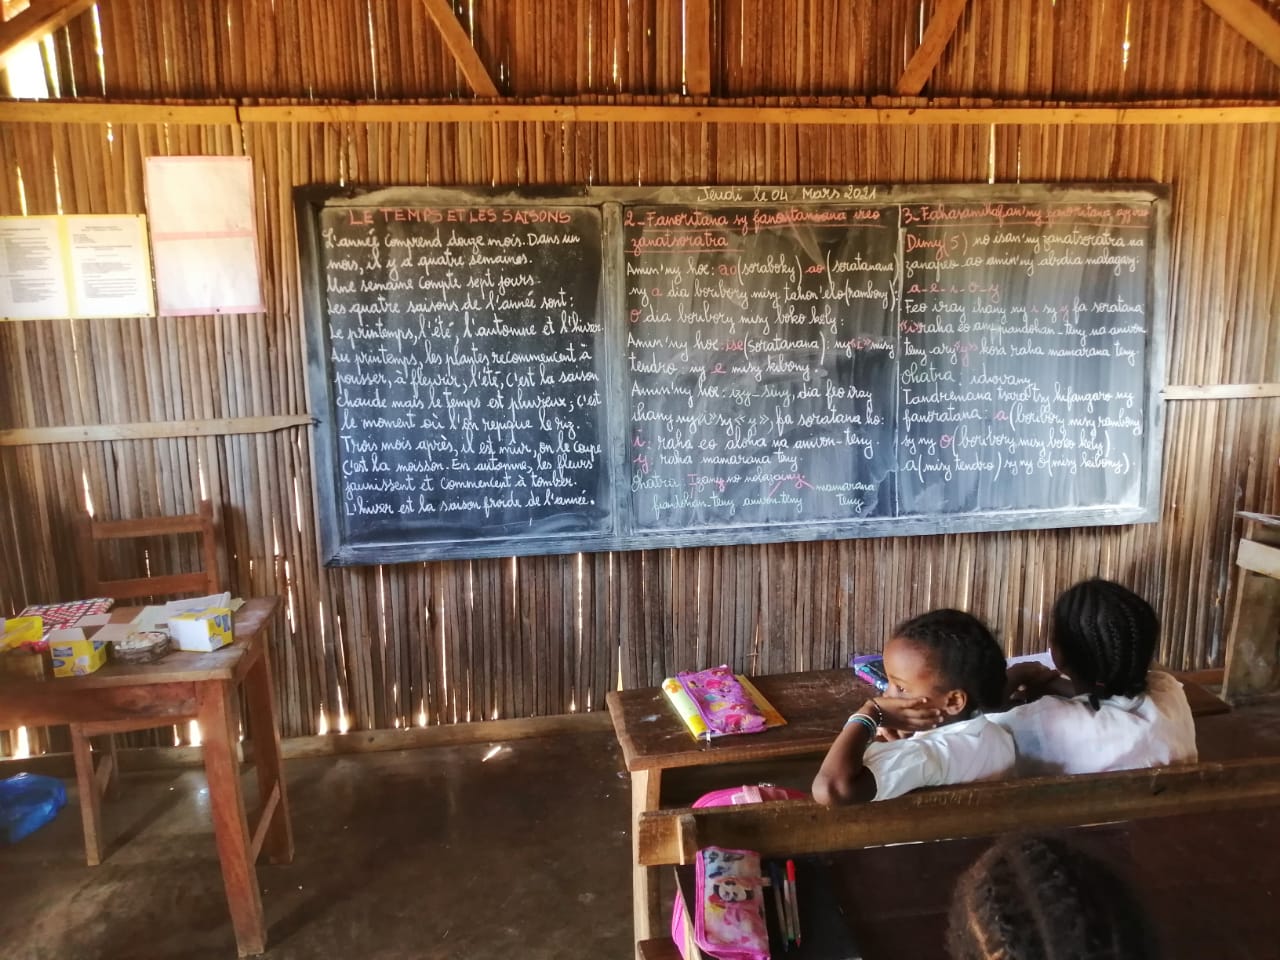 Jeudi le 04 Mars 2021
LE TEMPS ET LES SAISONS
L'année comprend douze mois. Dans un
mois, il y a quatre semaines.
Une semaine compte sept jours.
Les quatre saisons de l'année sont:
Le printemps, l'été, l'automne et l'hiver.
Au printemps, les plantes recommencent à
pousser, à fleurir; l'été, c'est la saison
chaude mais le temps est pluvieux; c'est
le moment où l'on repique le riz.
Trois mois après, il est mur, on le coupe
C'est la moisson. En automne, les fleurs
jaunissent et commencent à tomber.
L'hiver est la saison froide de l'année.
2_ Fanoritana sy fanontansana ireo
zanatsoratra
Amin'ny hoe: ao (soraboky) ao (soratanana)
ny a dia boribory misy tahon'elo (rambony).
O dia boribory misy boko kely:
Amin'ny hoe: ise (soratanana): ny "i" misy
tendro: ny e misy kibony.
Amin'ny hoe: izy_ siny, dia feo iray
ihany ny «i» sy «y», fa soratana ho:
i: raha eo aloha na anivon-teny.
y: raha mamarana teny.
Ohatra: Izany no nolazainy mamarana
fiandohan_teny anivon_teny teny
Dimy (5) no isan'ny zanatsoratra na
zanapeo ao amin'ny abidia malagasy:
a_e_i_o_y
Feo iray ihany ny i sy y fa soratana
"i" raha eo am-piandohan_teny na anivon
teny ary "y" kosa raha mamarana teny.
Ohatra: idiovany.
Tandremana tsara tsy hifangaro ny
fanoratana: a (boribory misy rambony)
sy ny o (boribory misy boko kely)
a (misy tendro) sy ny o (misy kibony).